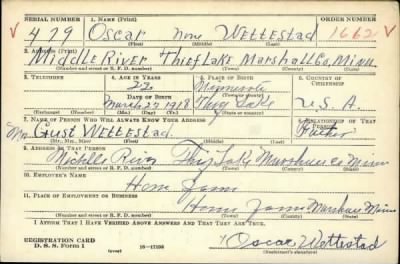 SERIAL NUMBER 1. NAME (Print) ORDER NUMBER
479 Oscar None Wettestad 1662
(First) (Middle) (Last)
2. ADDRESS (Print)
Middle River Thief Lake Marshall Co. Minn.
(Number and street or R. F. D. number) (Town) (County) (State)
3. TELEPHONE 4. AGE IN YEARS 5. PLACE OF BIRTH 6. COUNTRY OF CITIZENSHIP
22 Minnesota
DATE OF BIRTH
March 27 1918 Thief Lake U.S.A.
(Exchange) (Number) (Mo.) (Day) (Yr.) (State or country)
7. NAME OF PERSON WHO WILL ALWAYS KNOW YOUR ADDRESS 8. RELATIONSHIP OF THAT PERSON
Mr. Gust Wettestad Father
(Mr., Mrs., Miss) (First) (Middle) (Last)
9. ADDRESS OF THAT PERSON
Middle River Thief Lake Marshall Co Minn
(Number and street or R. F. D. number) (Town) (County) (State)
10. EMPLOYER'S NAME
Home Farm
11. PLACE OF EMPLOYMENT OR BUSINESS
Home Farm Marshall Minn
(Number and street or R. F. D. number) (Town) (County) (State)
I AFFIRM THAT I HAVE VERIFIED ABOVE ANSWERS AND THAT THEY ARE TRUE.
REGISTRATION CARD
D. S. S. Form 1 (over) 16-17105 Oscar Wettestad
(Registrant's signature)